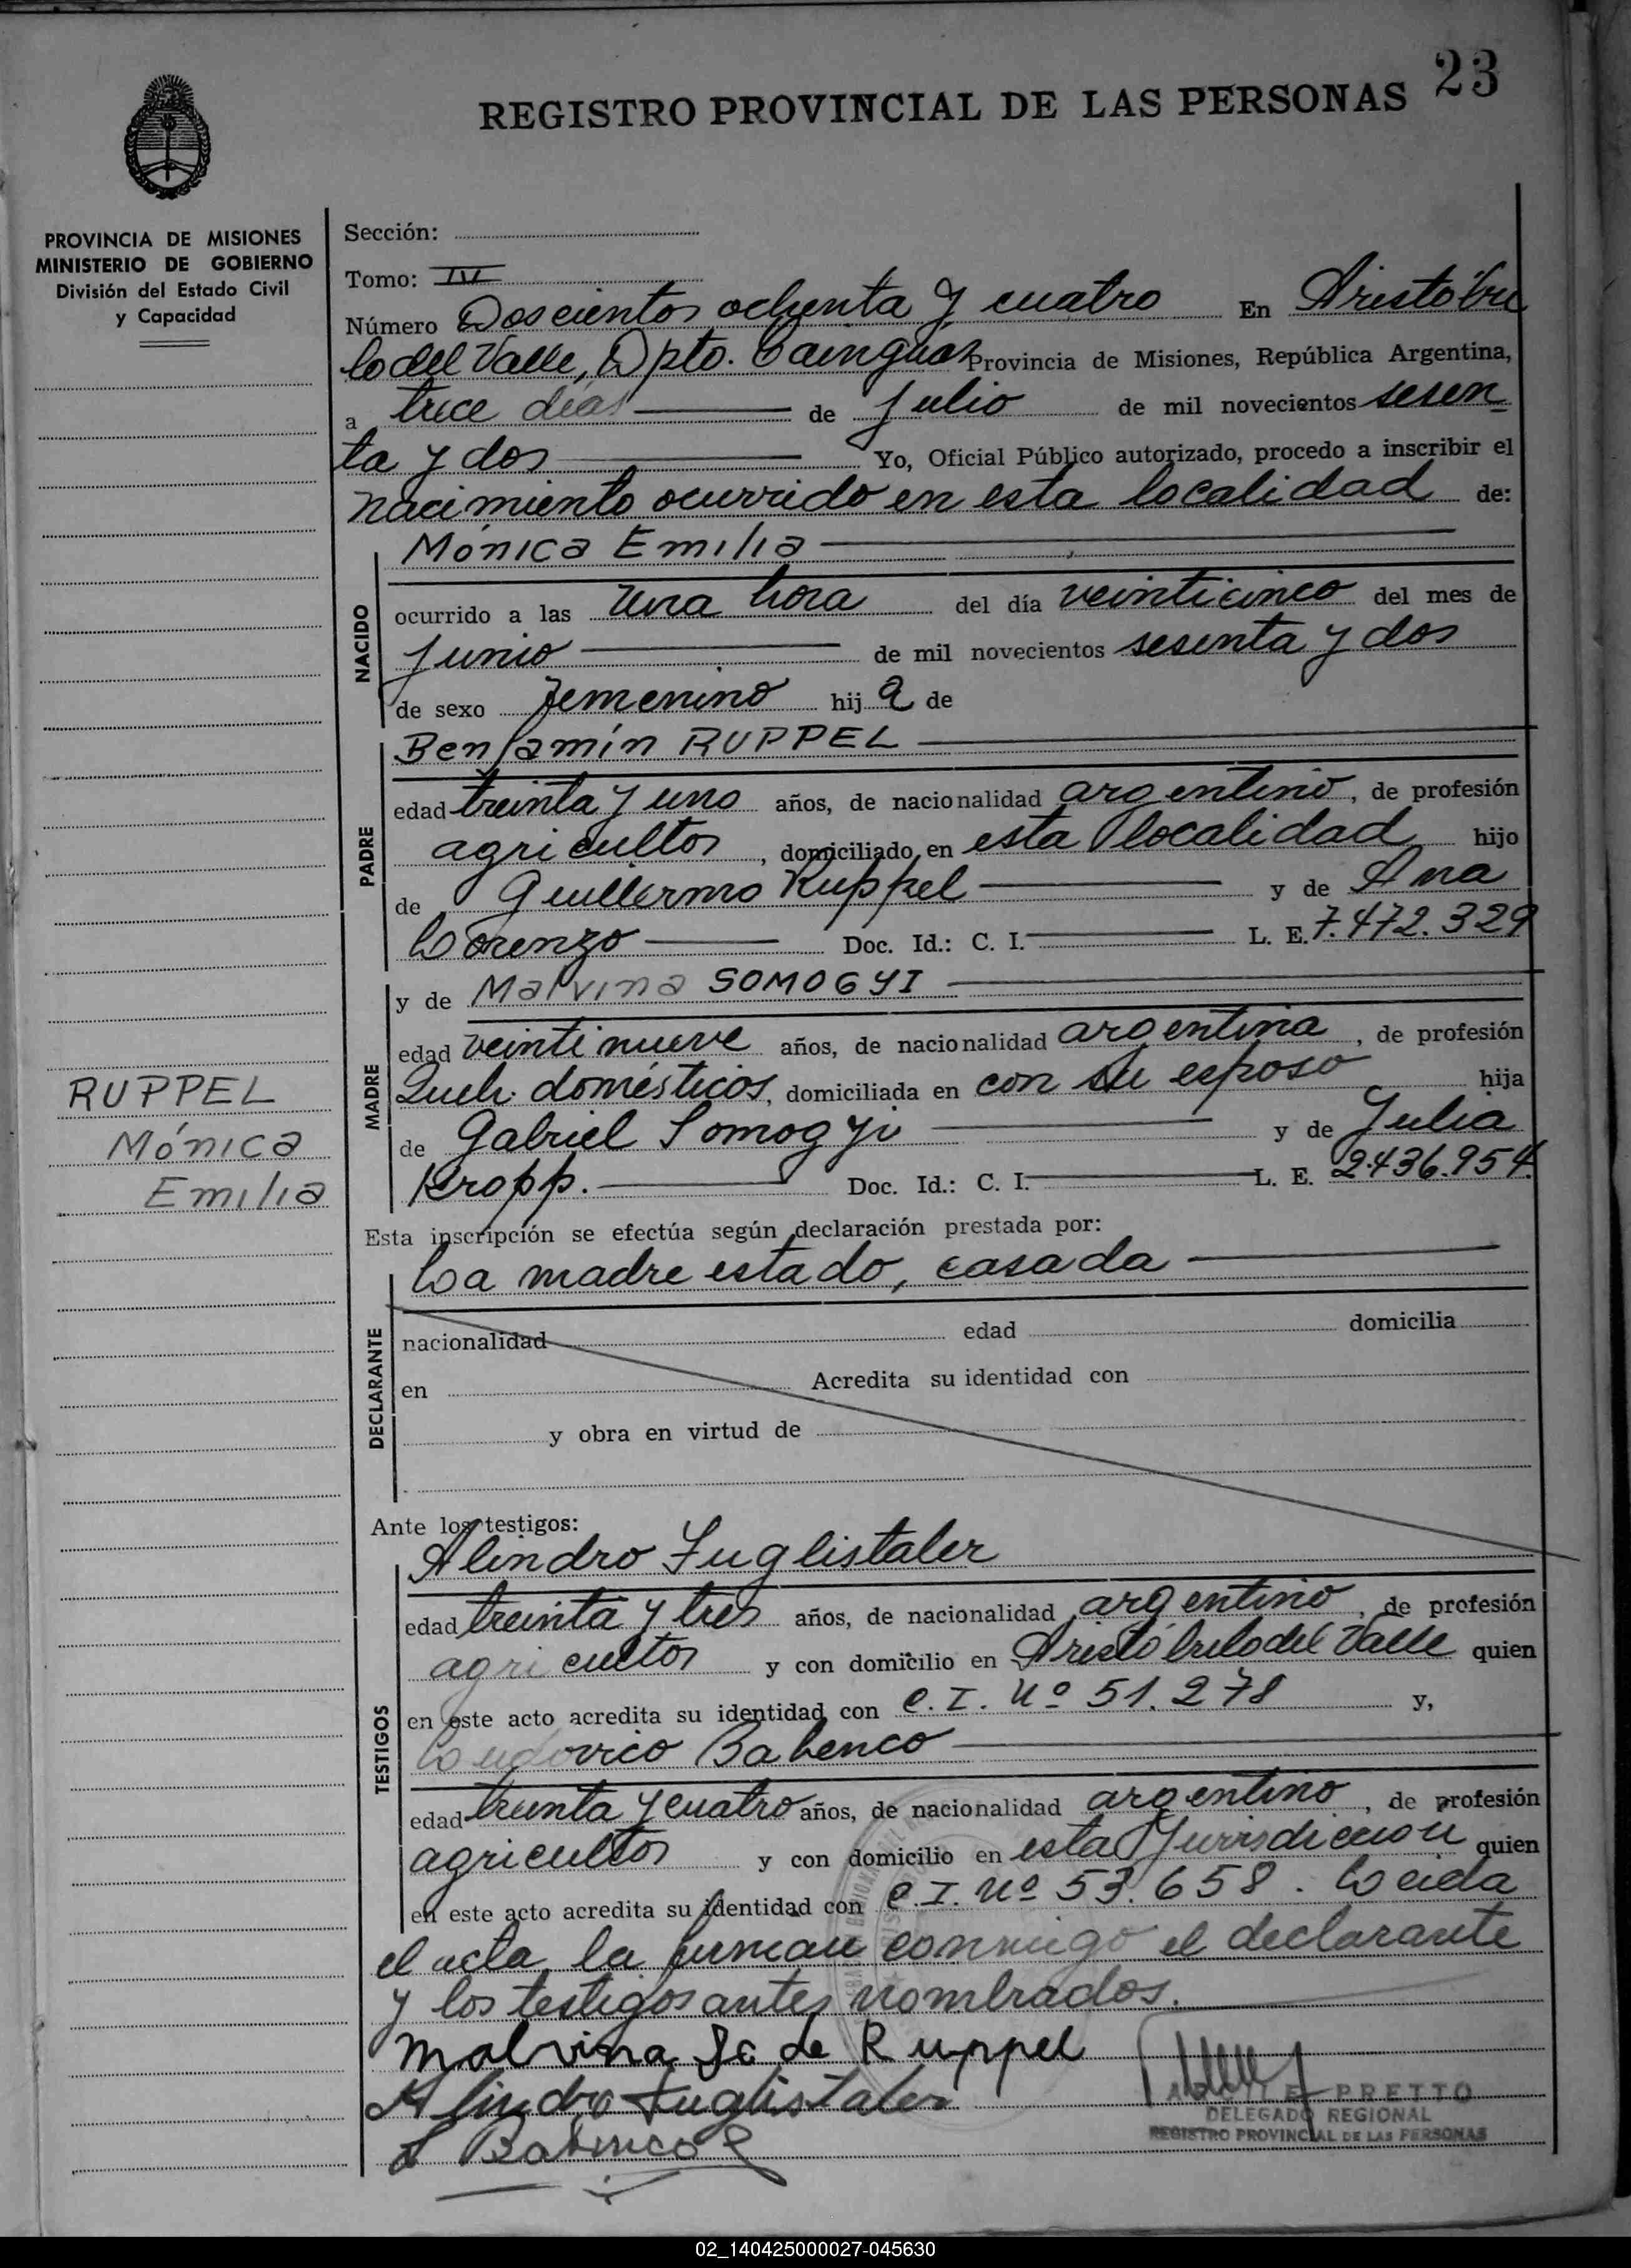 23
REGISTRO PROVINCIAL DE LAS PERSONAS
PROVINCIA DE MISIONES
MINISTERIO DE GOBIERNO
División del Estado Civil
y Capacidad
RUPPEL
Mónica
Emilia
Sección:
Tomo: IV
Número Doscientos ochenta y cuatro En Aristóbu
lo del Valle, Dpto. Cainguas Provincia de Misiones, República Argentina,
a trece días de Julio de mil novecientos sesen
ta y dos Yo, Oficial Público autorizado, procedo a inscribir el
nacimiento ocurrido en esta localidad de:
NACIDO
Mónica Emilia
ocurrido a las Una hora del día veinticinco del mes de
Junio de mil novecientos sesenta y dos
de sexo femenino hij a de
PADRE
Benjamín RUPPEL
edad treinta y uno años, de nacionalidad argentino, de profesión
agricultor, domiciliado en esta localidad hijo
de Guillermo Ruppel y de Ana
Lorenzo Doc. Id.: C. I. L. E. 7.472.329
MADRE
y de Malvina SOMOGYI
edad veintinueve años, de nacionalidad argentina, de profesión
Queh. domésticos, domiciliada en con su esposo hija
de Gabriel Somogyi y de Julia
Kropp. Doc. Id.: C. I. L. E. 2.436.954.
Esta inscripción se efectúa según declaración prestada por:
DECLARANTE
La madre estado, casada
nacionalidad edad domicilia
en Acredita su identidad con
y obra en virtud de
Ante los testigos:
TESTIGOS
Alindro Fuglistaler
edad treinta y tres años, de nacionalidad argentino, de profesión
agricultor y con domicilio en Aristóbulo del Valle quien
en este acto acredita su identidad con C. I. Nº 51.278 y,
Ludovico Babenco
edad treinta y cuatro años, de nacionalidad argentino, de profesión
agricultor y con domicilio en esta Jurisdiccion quien
en este acto acredita su identidad con C. I. Nº 53.658. Leida
el acta, la firman conmigo el declarante
y los testigos antes nombrados.
Malvina S. de Ruppel
Alindro Fuglistaler
L Babenco
PRETTO
DELEGADO REGIONAL
REGISTRO PROVINCIAL DE LAS PERSONAS
02_140425000027-045630